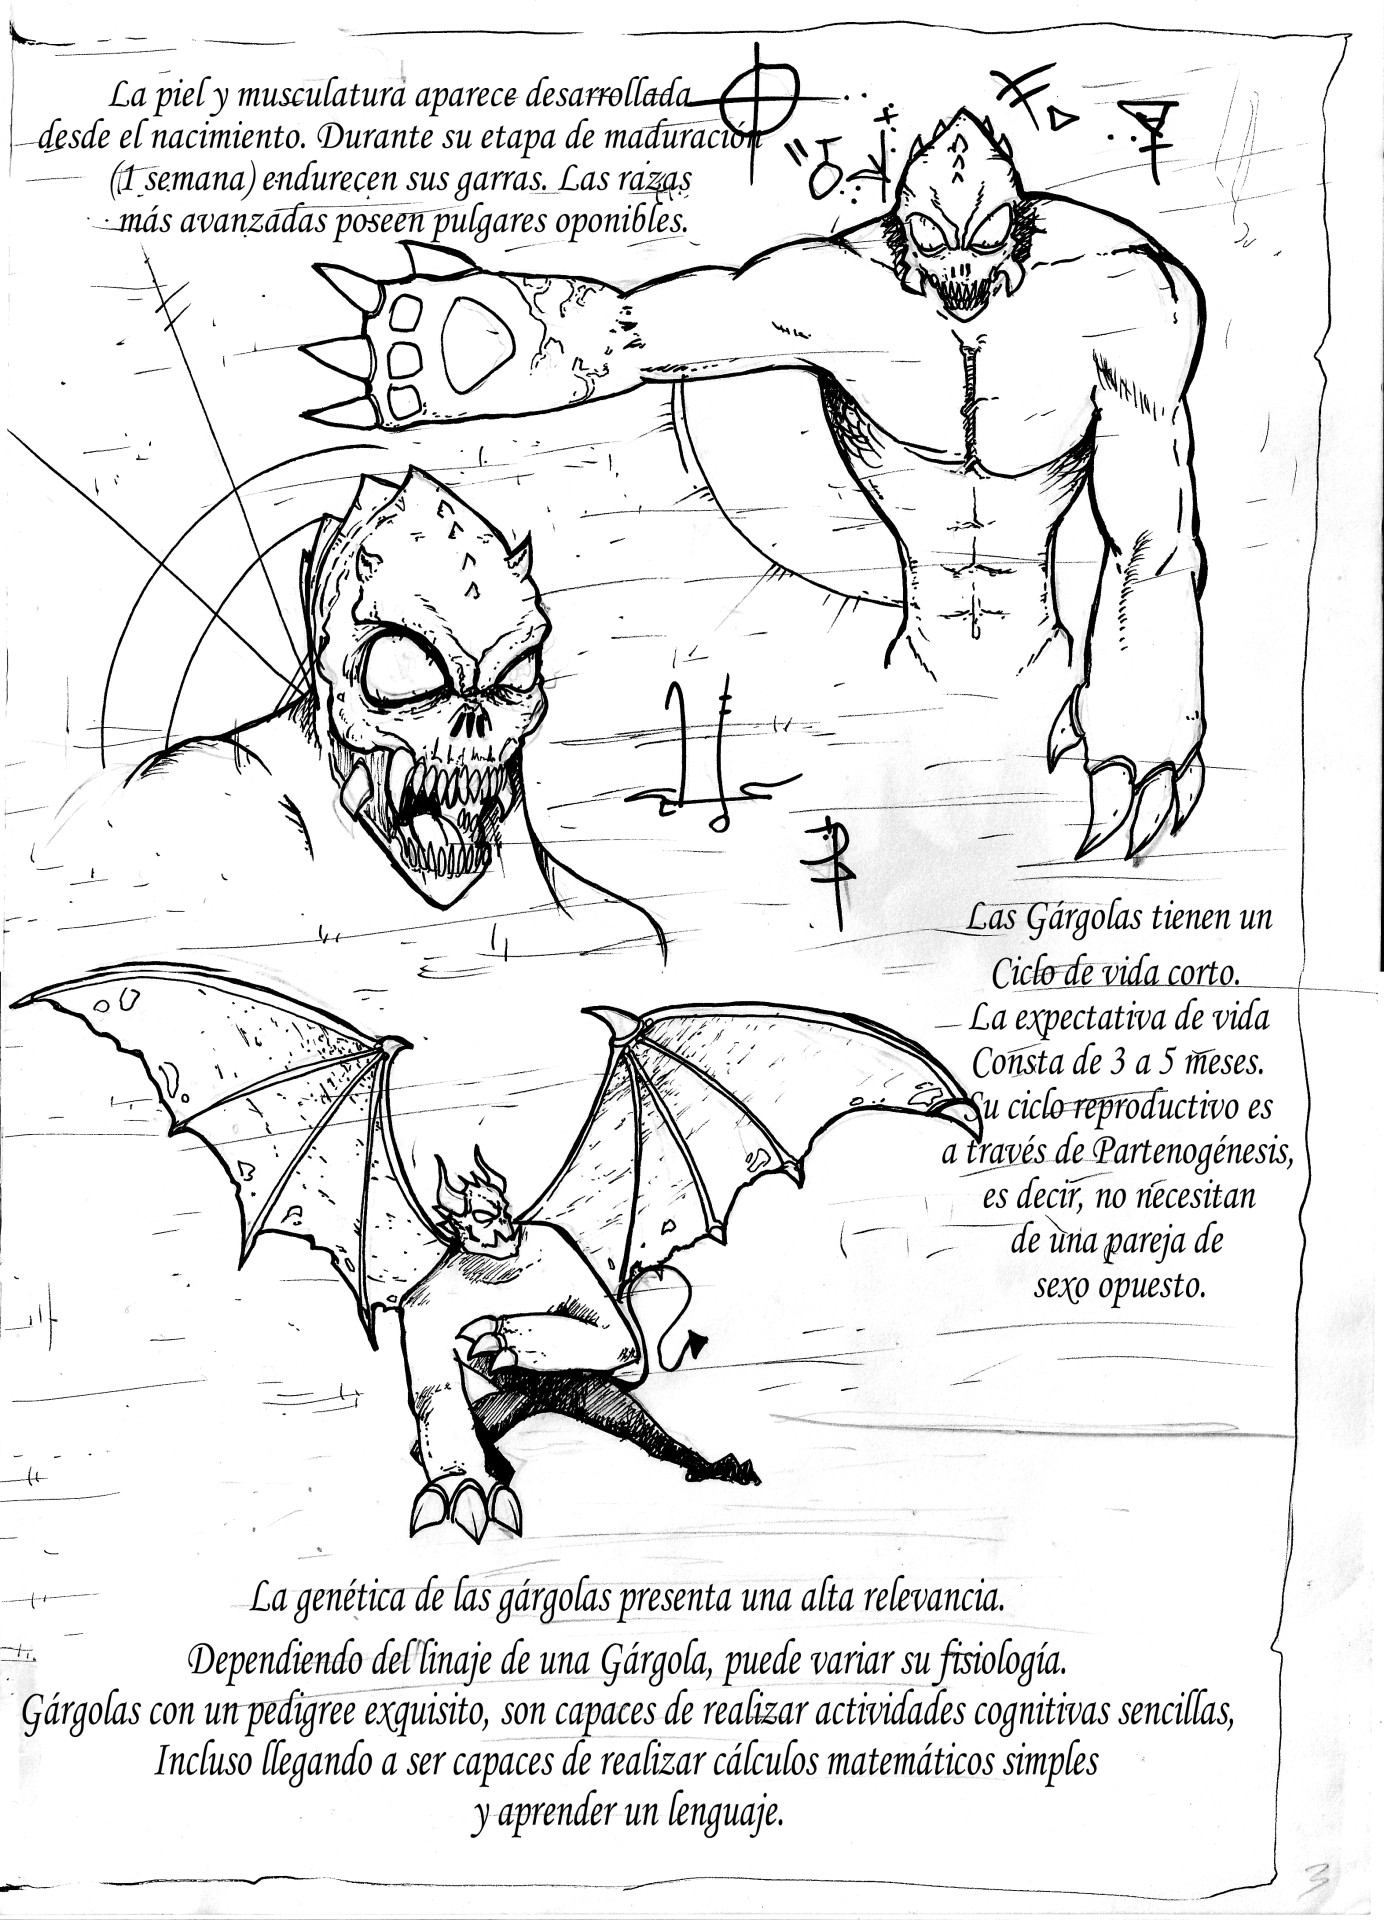 La piel y musculatura aparece desarrollada
desde el nacimiento. Durante su etapa de maduración
(1 semana) endurecen sus garras. Las razas
más avanzadas poseen pulgares oponibles.
Las Gárgolas tienen un
Ciclo de vida corto.
La expectativa de vida
Consta de 3 a 5 meses.
Su ciclo reproductivo es
a través de Partenogénesis,
es decir, no necesitan
de una pareja de
sexo opuesto.
La genética de las gárgolas presenta una alta relevancia.
Dependiendo del linaje de una Gárgola, puede variar su fisiología.
Gárgolas con un pedigree exquisito, son capaces de realizar actividades cognitivas sencillas,
Incluso llegando a ser capaces de realizar cálculos matemáticos simples
y aprender un lenguaje.
3